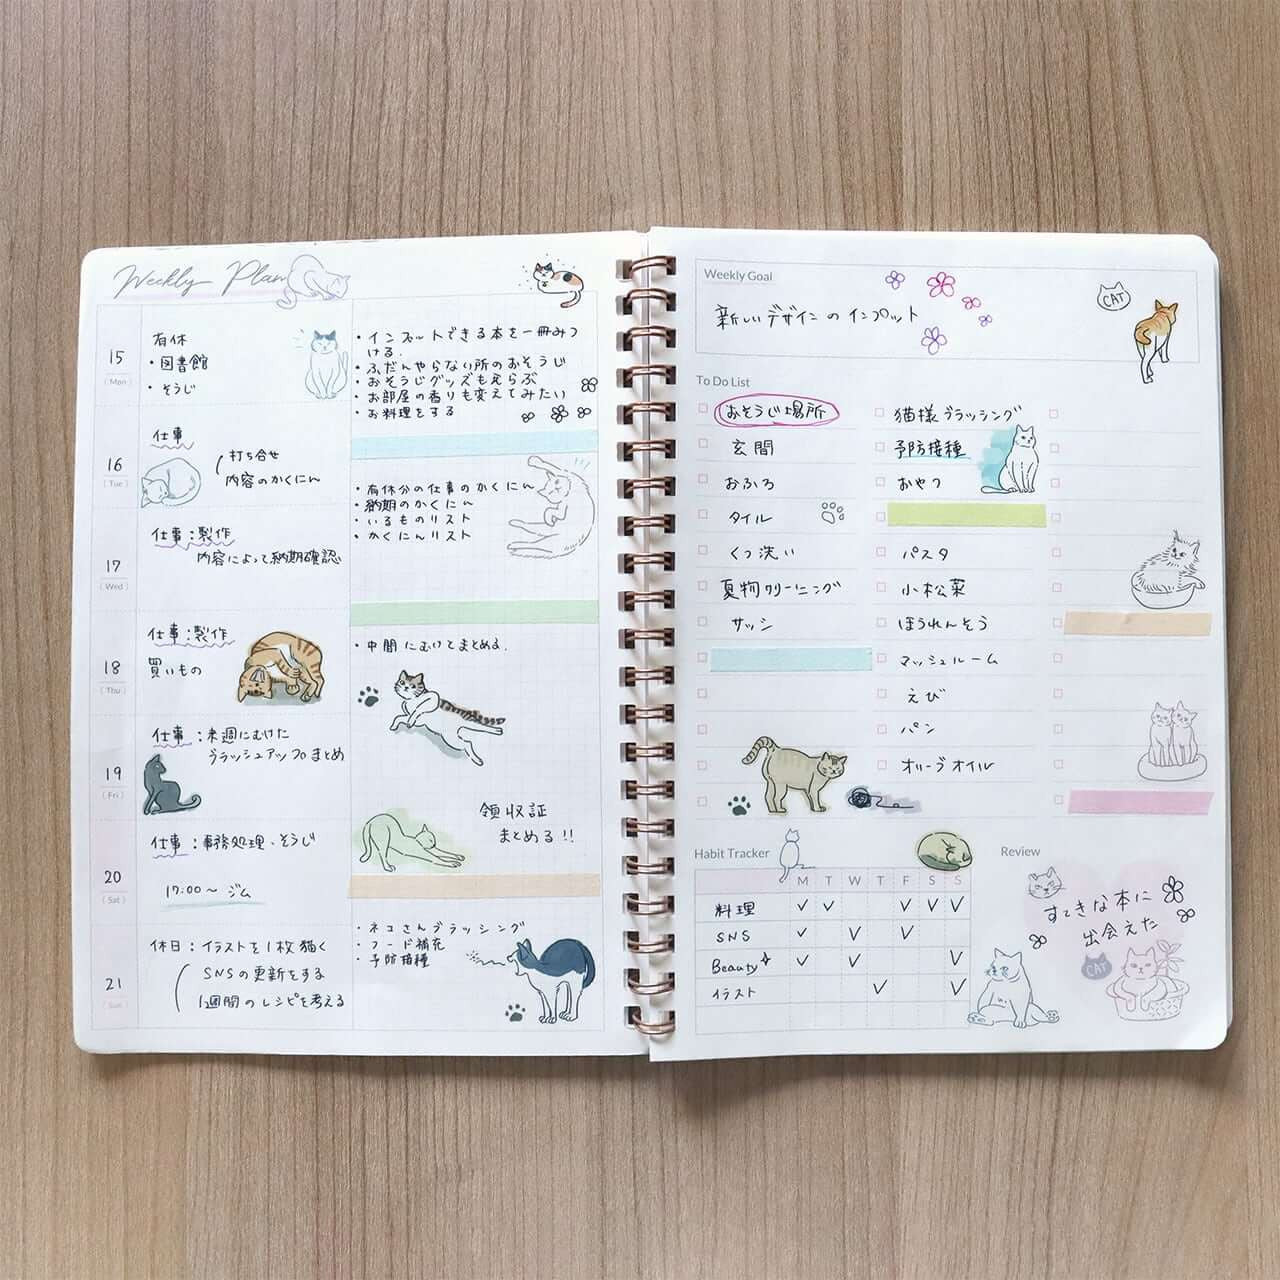 Weekly Plan
15
(Mon)
有休
・図書館
・そうじ
・インプットできる本を一冊みつ
ける.
・ふだんやらない所のおそうじ
・おそうじグッズもえらぶ
・お部屋の香りも変えてみたい
・お料理をする
16
(Tue)
仕事
打ち合せ
内容のかくにん
・有休分の仕事のかくにん
・納期のかくにん
・いるものリスト
・かくにんリスト
17
(Wed)
仕事:製作
内容によって納期確認
18
(Thu)
仕事:製作
買いもの
・中間にむけてまとめる.
19
(Fri)
仕事:来週にむけた
ブラッシュアップのまとめ
領収証
まとめる!!
20
(Sat)
仕事:事務処理・そうじ
17:00〜 ジム
21
(Sun)
休日:イラストを1枚描く
SNSの更新をする
1週間のレシピを考える
・ネコさんブラッシング
・フード補充
・予防接種
Weekly Goal
新しいデザインのインプット
CAT
To Do List
おそうじ場所
玄関
おふろ
タイル
くつ洗い
夏物クリーニング
サッシ
猫様ブラッシング
予防接種
おやつ
パスタ
小松菜
ほうれんそう
マッシュルーム
えび
パン
オリーブオイル
Habit Tracker
M T W T F S S
料理
SNS
Beauty
イラスト
Review
すてきな本に
出会えた
CAT